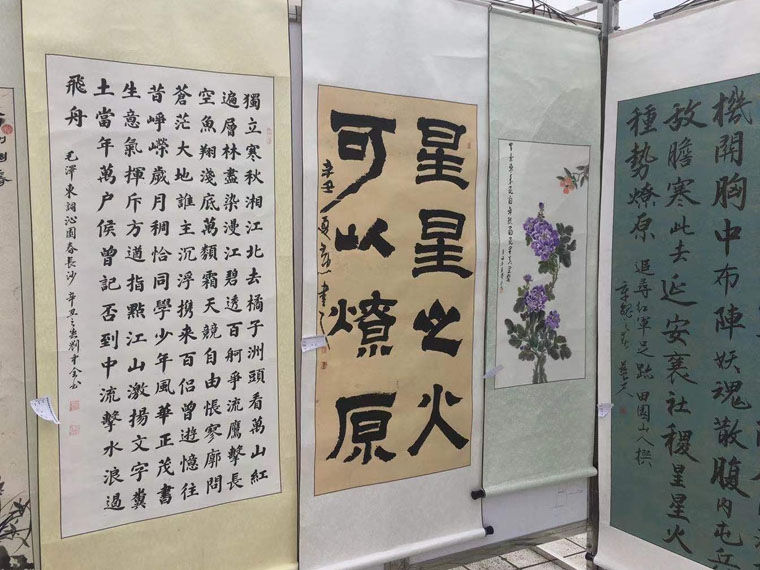 獨立寒秋湘江北去橘子洲頭看萬山紅
遍層林盡染漫江碧透百舸爭流鷹擊長
空魚翔淺底萬類霜天競自由悵寥廓問
蒼茫大地誰主沉浮携來百侶曾遊憶往
昔崢嶸歲月稠恰同學少年風華正茂書
生意氣揮斥方遒指點江山激揚文字糞
土當年萬户侯曾記否到中流擊水浪遏
飛舟
毛澤東詞沁園春長沙 辛丑之
星星之火
可以燎原
辛丑 夏 書
機開胸中布陣妖魂散腹内屯兵
放膽寒此去延安襄社稷星星火
種勢燎原
追尋紅軍足跡 田園山人撰